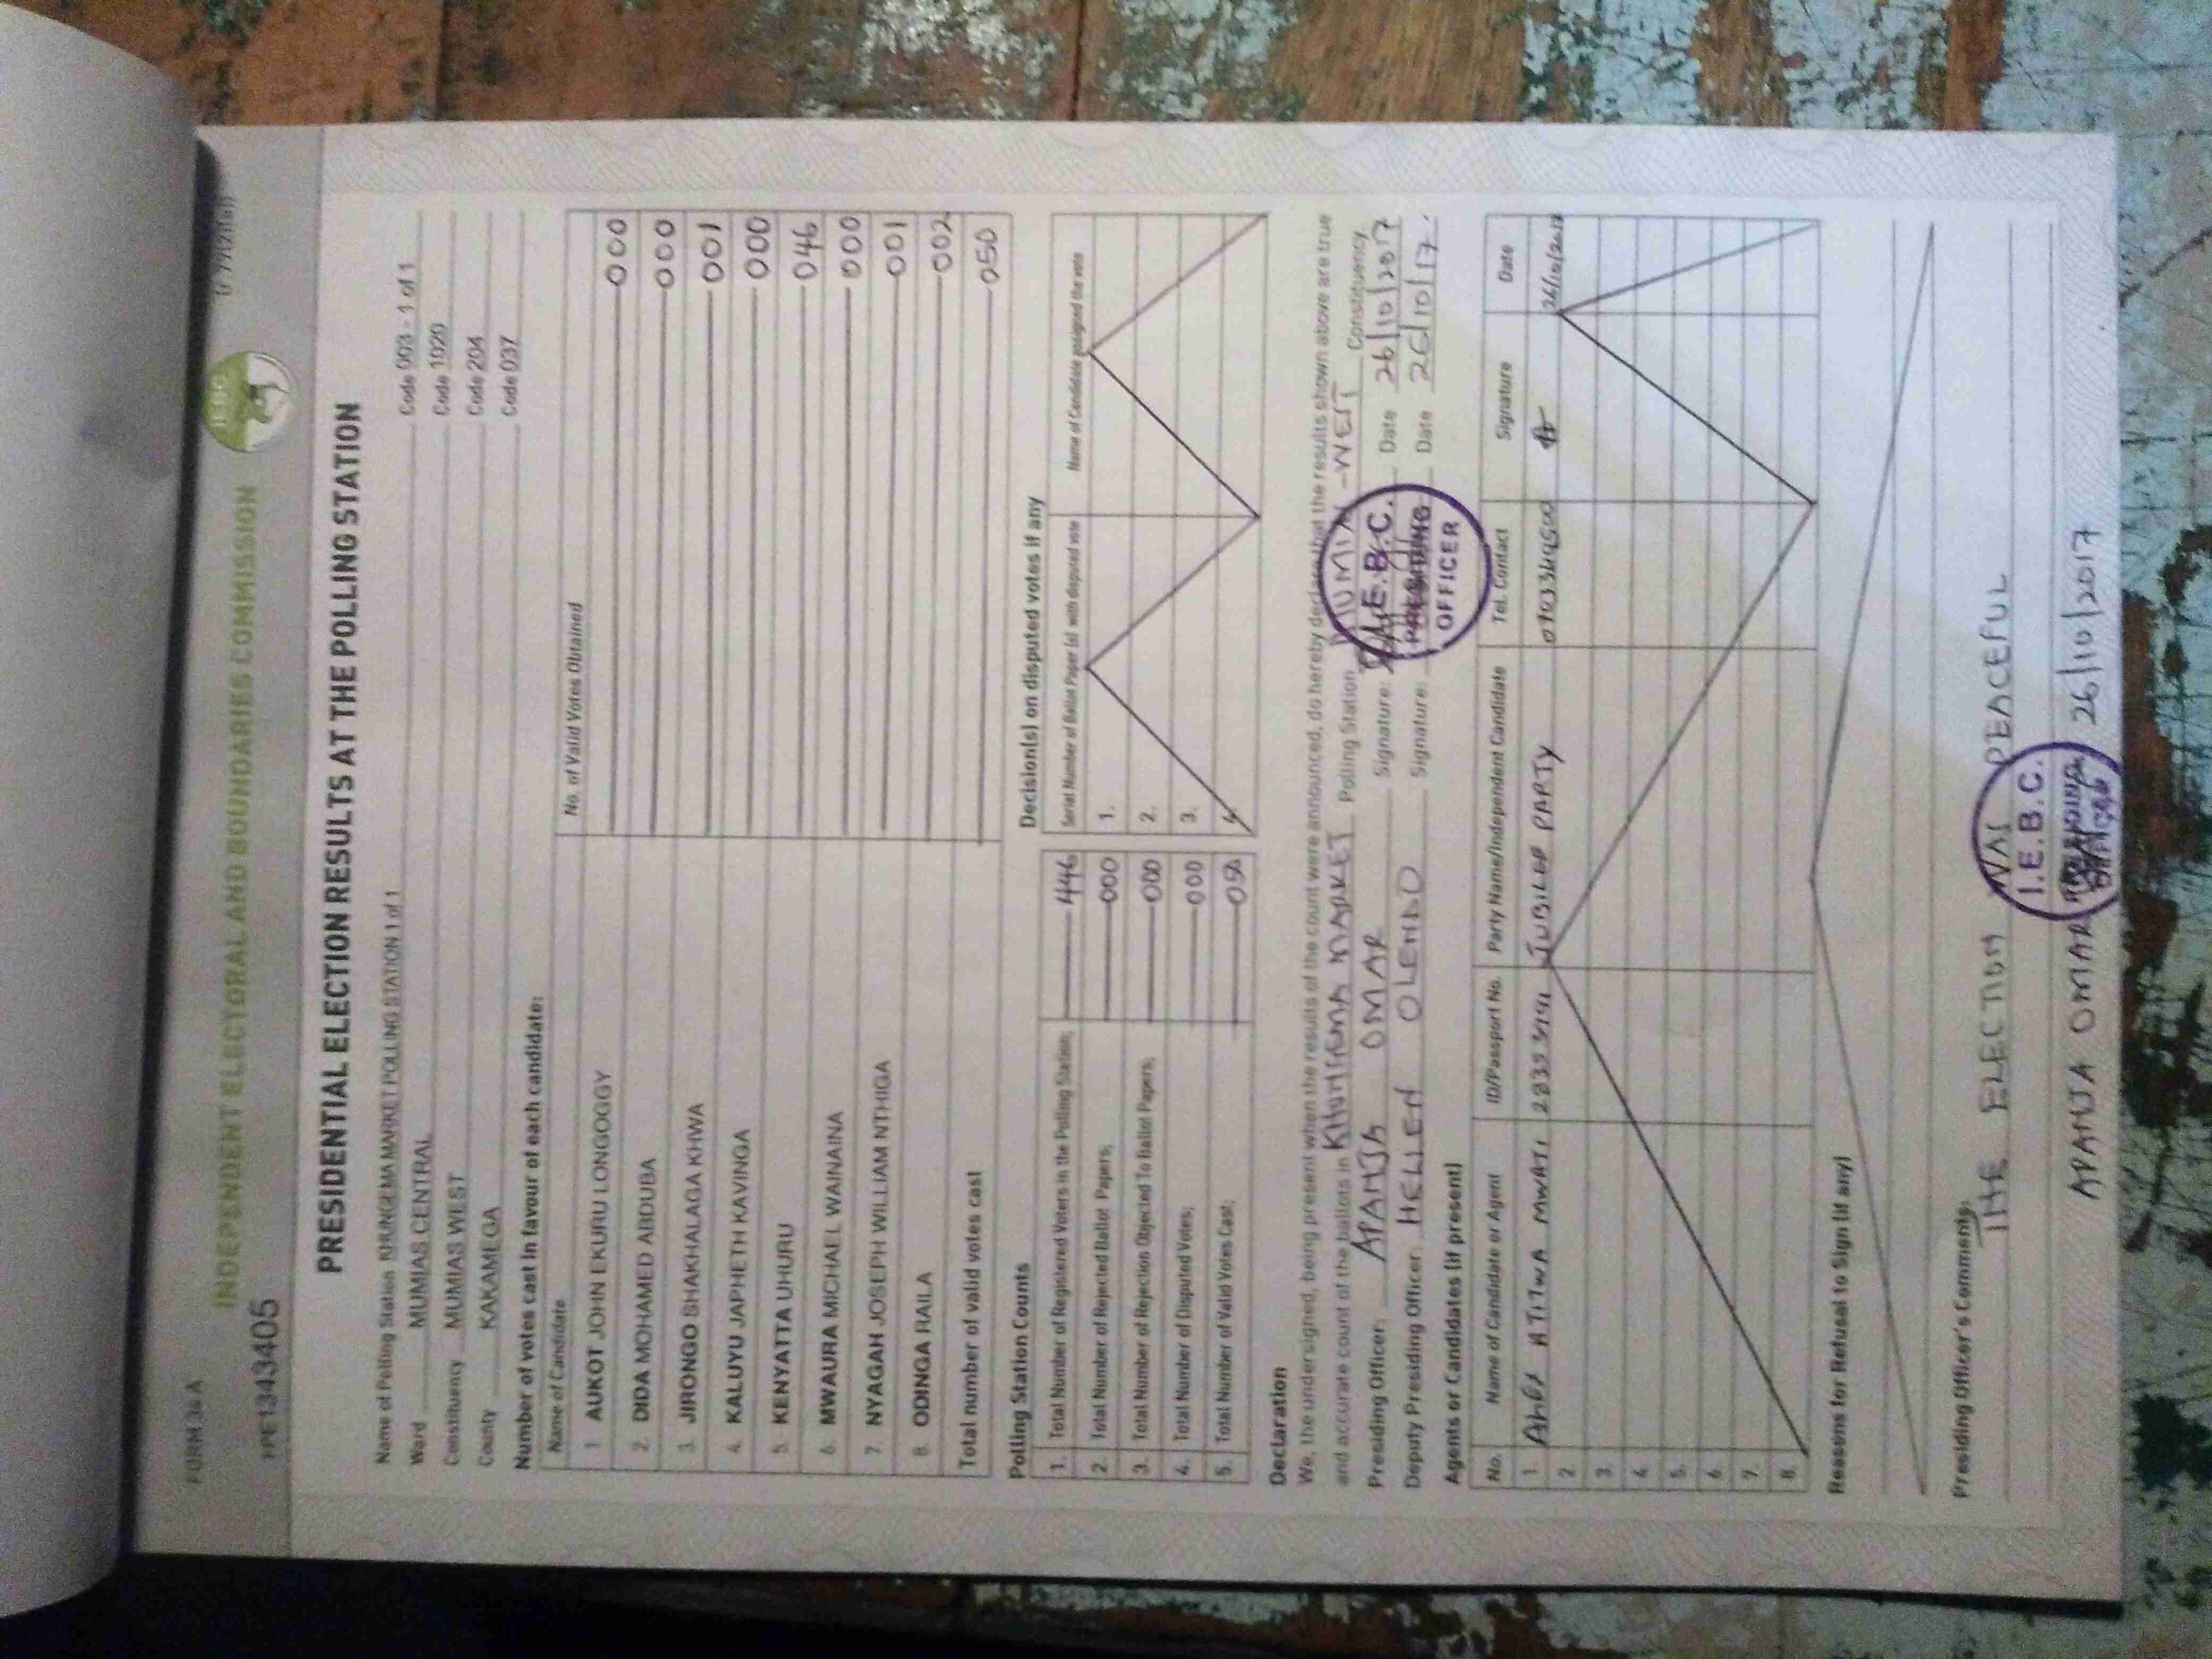 FORM 34A
INDEPENDENT ELECTORAL AND BOUNDARIES COMMISSION
IEBC
PRE1343405
PRESIDENTIAL ELECTION RESULTS AT THE POLLING STATION
Name of Polling Station KHUNGEMA MARKET POLLING STATION 1 of 1 Code 003 - 1 of 1
Ward MUMIAS CENTRAL Code 1020
Constituency MUMIAS WEST Code 204
County KAKAMEGA Code 037
Number of votes cast in favour of each candidate:
Name of Candidate No. of Valid Votes Obtained
1. AUKOT JOHN EKURU LONGOGGY 000
2. DIDA MOHAMED ABDUBA 000
3. JIRONGO SHAKHALAGA KHWA 001
4. KALUYU JAPHETH KAVINGA 000
5. KENYATTA UHURU 046
6. MWAURA MICHAEL WAINAINA 000
7. NYAGAH JOSEPH WILLIAM NTHIGA 001
8. ODINGA RAILA 002
Total number of valid votes cast 050
Polling Station Counts
1. Total Number of Registered Voters in the Polling Station; 446
2. Total Number of Rejected Ballot Papers; 000
3. Total Number of Rejection Objected To Ballot Papers; 000
4. Total Number of Disputed Votes; 000
5. Total Number of Valid Votes Cast; 050
Decision(s) on disputed votes if any
Serial Number of Ballot Paper (s) with disputed vote Name of Candidate assigned the vote
1.
2.
3.
4.
Declaration
We, the undersigned, being present when the results of the count were announced, do hereby declare that the results shown above are true
and accurate count of the ballots in KHUNGEMA MARKET Polling Station MUMIAS -WEST Constituency
Presiding Officer: APANJA OMAR Signature: Date 26/10/2017
Deputy Presiding Officer: HELLEN OLENDO Signature: Date 26/10/17.
I.E.B.C.
PRESIDING
OFFICER
Agents or Candidates (if present)
No. Name of Candidate or Agent ID/Passport No. Party Name/Independent Candidate Tel. Contact Signature Date
1. MWATI JUBILEE PARTY 26/10/2017
2.
3.
4.
5.
6.
7.
8.
Reasons for Refusal to Sign (if any)
Presiding Officer's Comments:
THE ELECTION WAS PEACEFUL
I.E.B.C.
PRESIDING
OFFICER
APANJA OMAR 26/10/2017